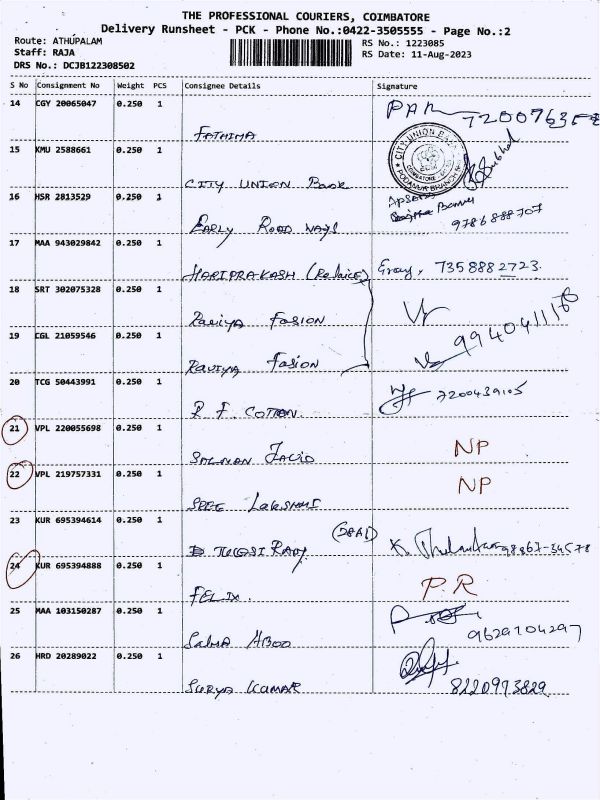 THE PROFESSIONAL COURIERS, COIMBATORE
Delivery Runsheet - PCK - Phone No.:0422-3505555 - Page No.:2
Route: ATHUPALAM
RS No.: 1223085
Staff: RAJA
RS Date: 11-Aug-2023
DRS No.: DCJB122308502
S No Consignment No Weight PCS Consignee Details Signature
14 CGY 20065047 0.250 1
FATHIMA
15 KMU 2588661 0.250 1
CITY UNION BANK
CITY UNION BANK
PODANUR BRANCH
16 HSR 2813529 0.250 1
EARLY ROAD WAYS
9786888707
17 MAA 943029842 0.250 1
HARIPRAKASH (Reliance) 7358882723
18 SRT 302075328 0.250 1
Raviya FASION
19 CGL 21059546 0.250 1
Raviya Fasion
20 TCG 50443991 0.250 1
R. F. COTTON 7200439105
21 VPL 220055698 0.250 1
SALMAN JAVID NP
22 VPL 219757331 0.250 1
SREE LAKSHMI NP
23 KUR 695394614 0.250 1
24 KUR 695394888 0.250 1
FELIX. P.R
25 MAA 103150287 0.250 1
SALMA ABOO 9629204297
26 HRD 20289022 0.250 1
SURYA KUMAR 8220993829